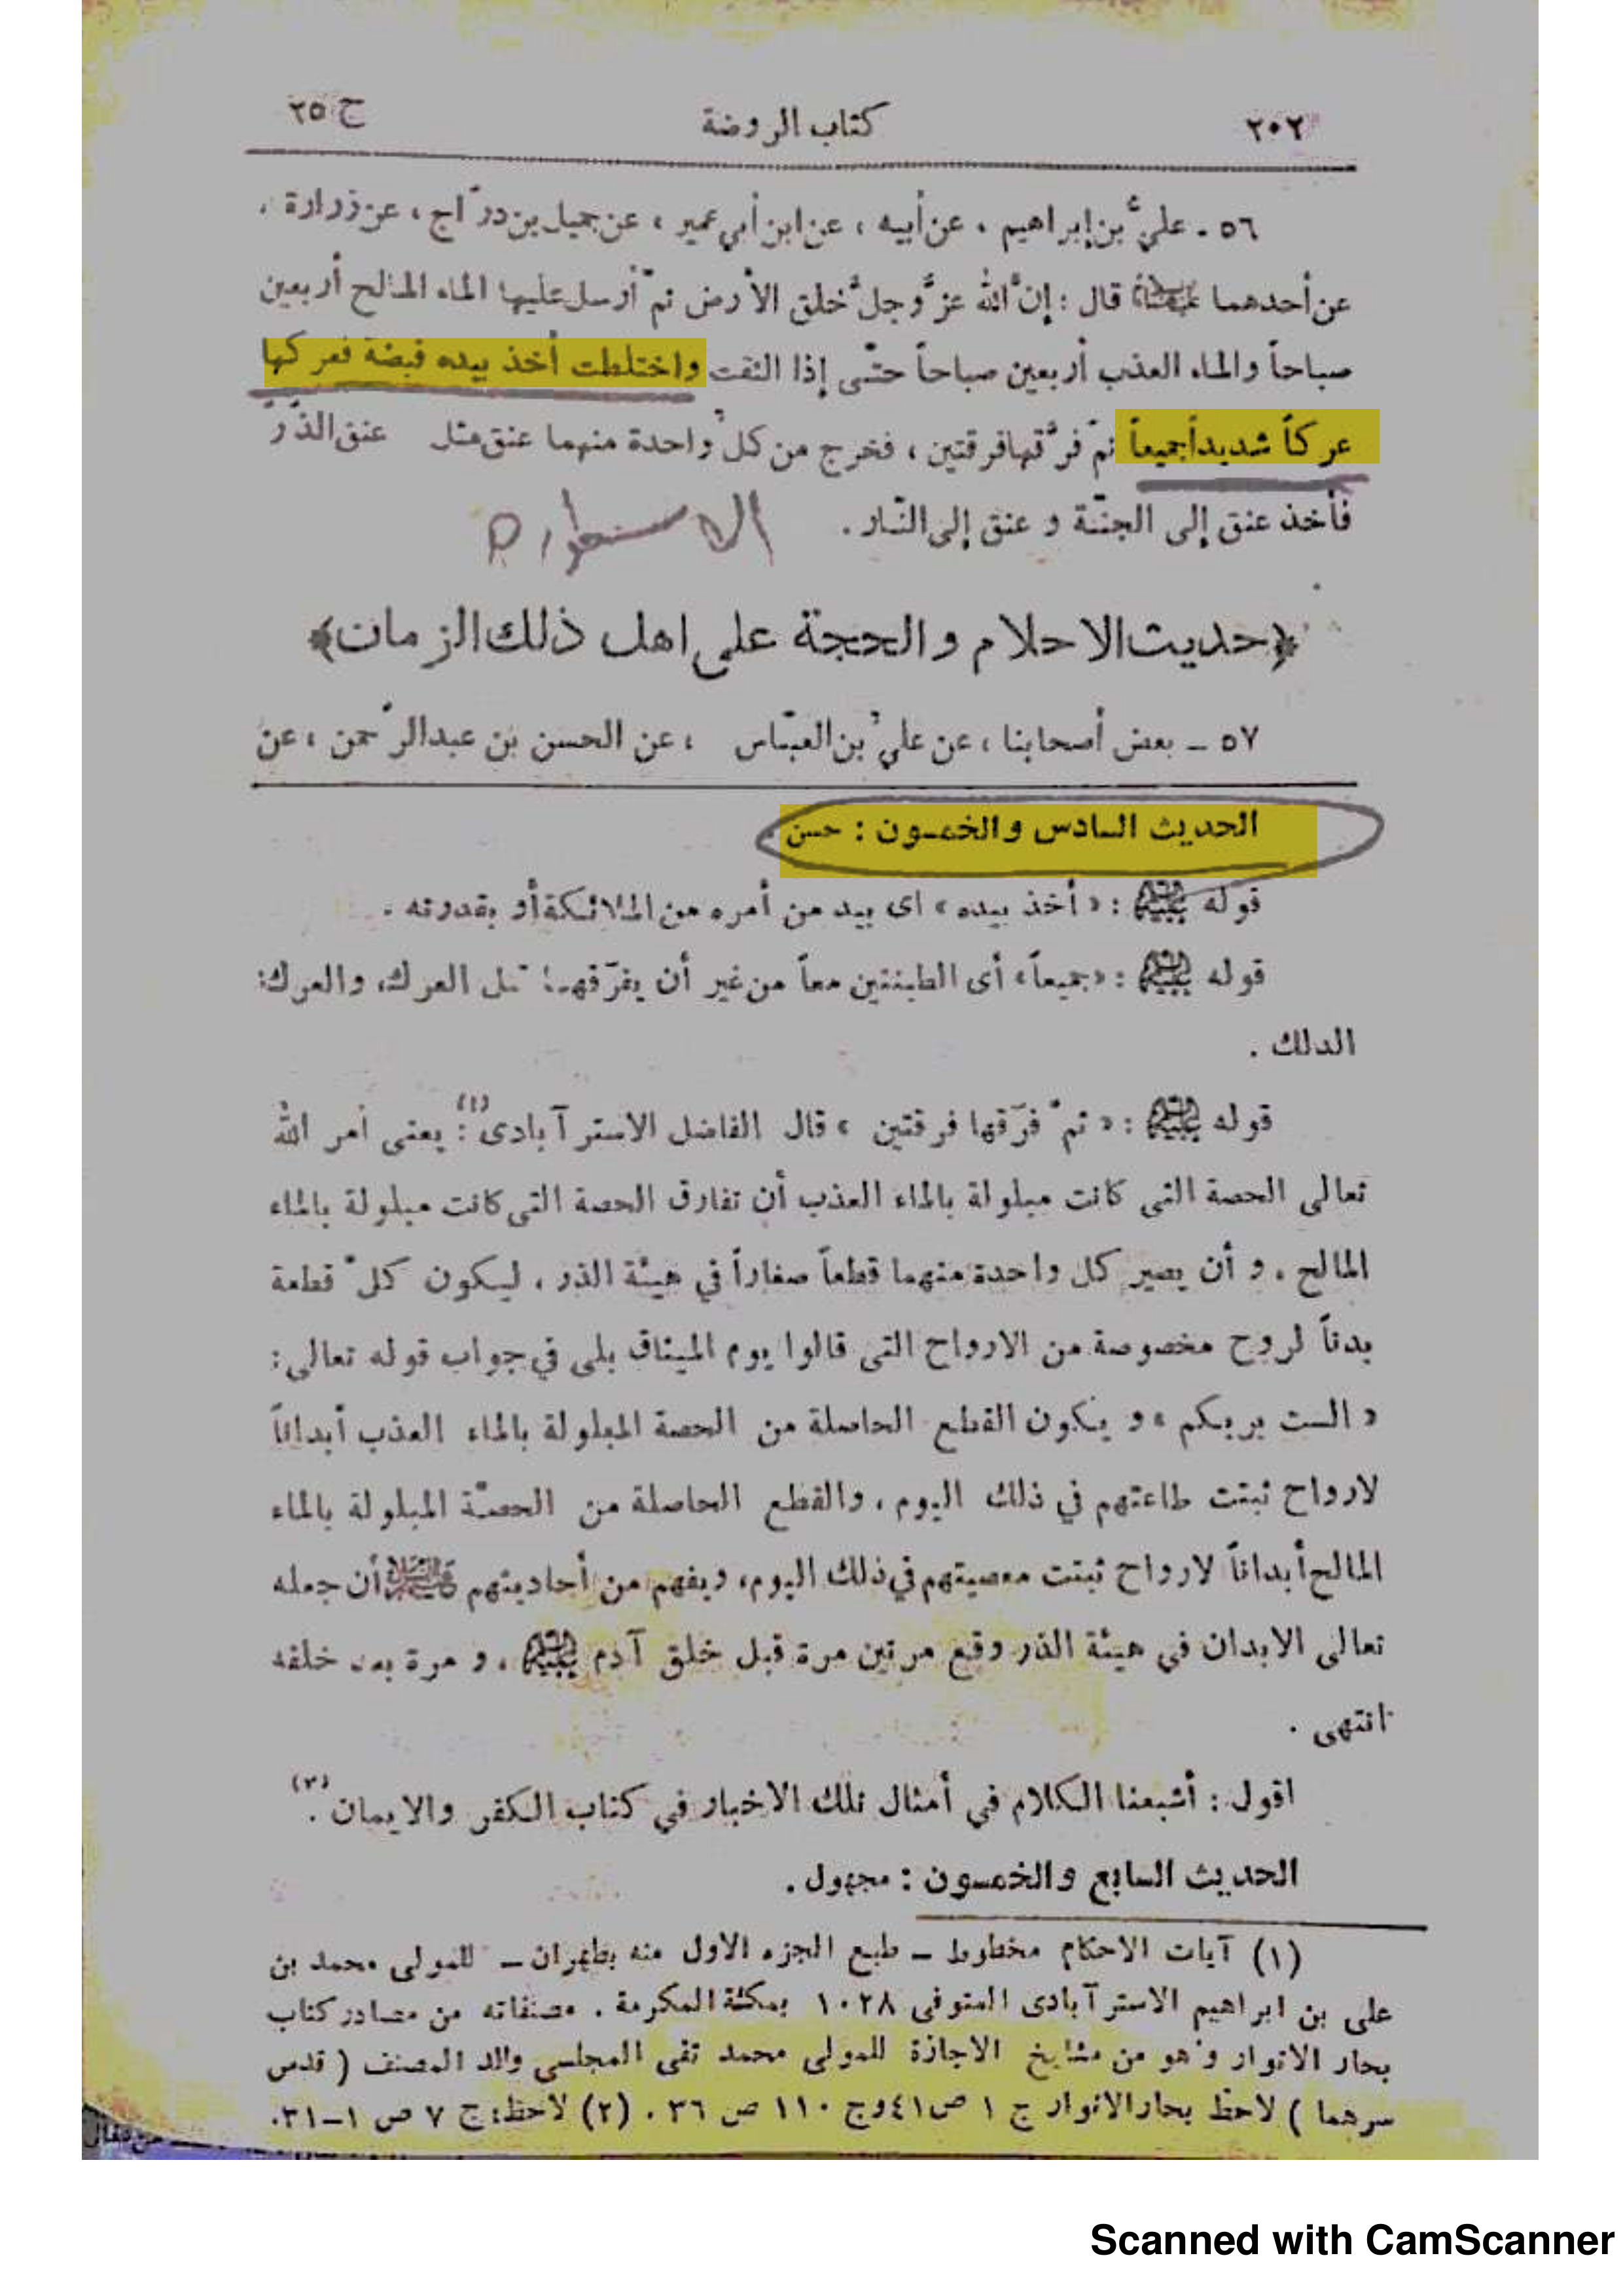 ٢٠٢ كتاب الروضة ج ٢٥
٥٦ ـ عليُّ بن إبراهيم ، عن أبيه ، عن ابن أبي عمير ، عن جميل بن درّاج ، عن زرارة ،
عن أحدهما قال : إنَّ الله عزَّ وجلَّ خلق الأرض ثمّ أرسل عليها الماء المالح أربعين
صباحاً والماء العذب أربعين صباحاً حتّى إذا التقت واختلطت أخذ بيده قبضة فعركها
عركاً شديداً جميعاً ثمّ فرَّقها فرقتين ، فخرج من كلِّ واحدة منهما عنق مثل عنق الذَّرِّ
فأخذ عنق إلى الجنّة و عنق إلى النّار .
﴿حديث الاحلام والحجة على اهل ذلك الزمان﴾
٥٧ ـ بعض أصحابنا ، عن عليِّ بن العبّاس ، عن الحسن بن عبدالرَّحمن ، عن
الحديث السادس والخمسون : حسن .
قوله : « أخذ بيده » اى بيد من أمره من الملائكة أو بقدرته .
قوله : «جميعاً» أى الطينتين معاً من غير أن يفرّقهما قبل العرك، والعرك:
الدلك .
قوله : « ثمّ فرّقها فرقتين » قال الفاضل الاسترآبادى(١): يعنى أمر الله
تعالى الحصة التى كانت مبلولة بالماء العذب أن تفارق الحصة التى كانت مبلولة بالماء
المالح ، و أن يصير كل واحدة منهما قطعاً صغاراً في هيئة الذر ، ليكون كلّ قطعة
بدناً لروح مخصوصة من الارواح التى قالوا يوم الميثاق بلى في جواب قوله تعالى :
« الست بربكم » و يكون القطع الحاصلة من الحصة المبلولة بالماء العذب أبداناً
لارواح ثبتت طاعتهم في ذلك اليوم ، والقطع الحاصلة من الحصّة المبلولة بالماء
المالح أبداناً لارواح ثبتت معصيتهم في ذلك اليوم، ويفهم من أحاديثهم أن جعله
تعالى الابدان في هيئة الذر وقع مرتين مرة قبل خلق آدم ، و مرة بعد خلقه
انتهى .
اقول : أشبعنا الكلام في أمثال تلك الاخبار في كتاب الكفر والايمان(٢) .
الحديث السابع والخمسون : مجهول .
(١) آيات الاحكام مخطوط ـ طبع الجزء الاول منه بطهران ـ للمولى محمد بن
على بن ابراهيم الاسترآبادى المتوفى ١٠٢٨ بمكة المكرمة . مصنفاته من مصادر كتاب
بحار الانوار وهو من مشايخ الاجازة للمولى محمد تقى المجلسى والد المصنف ( قدس
سرهما ) لاحظ بحار الانوار ج ١ ص ٤١ وج ١١٠ ص ٣٦ . (٢) لاحظ: ج ٧ ص ١ـ٣١.
Scanned with CamScanner